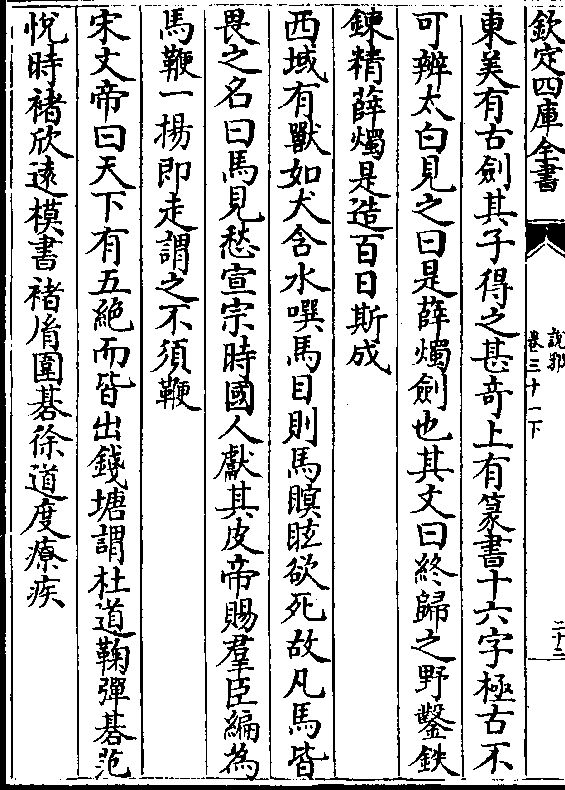 欽定四庫全書
說郛
卷三十一下
二十三
東美有古劍其子得之甚奇上有篆書十六字極古不
可辨太白見之曰是薛燭劍也其文曰終歸之野鑿鉄
鍊精薛燭是造百日斯成
西域有獸如犬含水噀馬目則馬瞑眩欲死故凡馬皆
畏之名曰馬見愁宣宗時國人獻其皮帝賜羣臣編為
馬鞭一揚即走謂之不須鞭
宋文帝曰天下有五絶而皆出錢塘謂杜道鞠彈碁范
悅時褚欣遠模書褚脩圍碁徐道度療疾